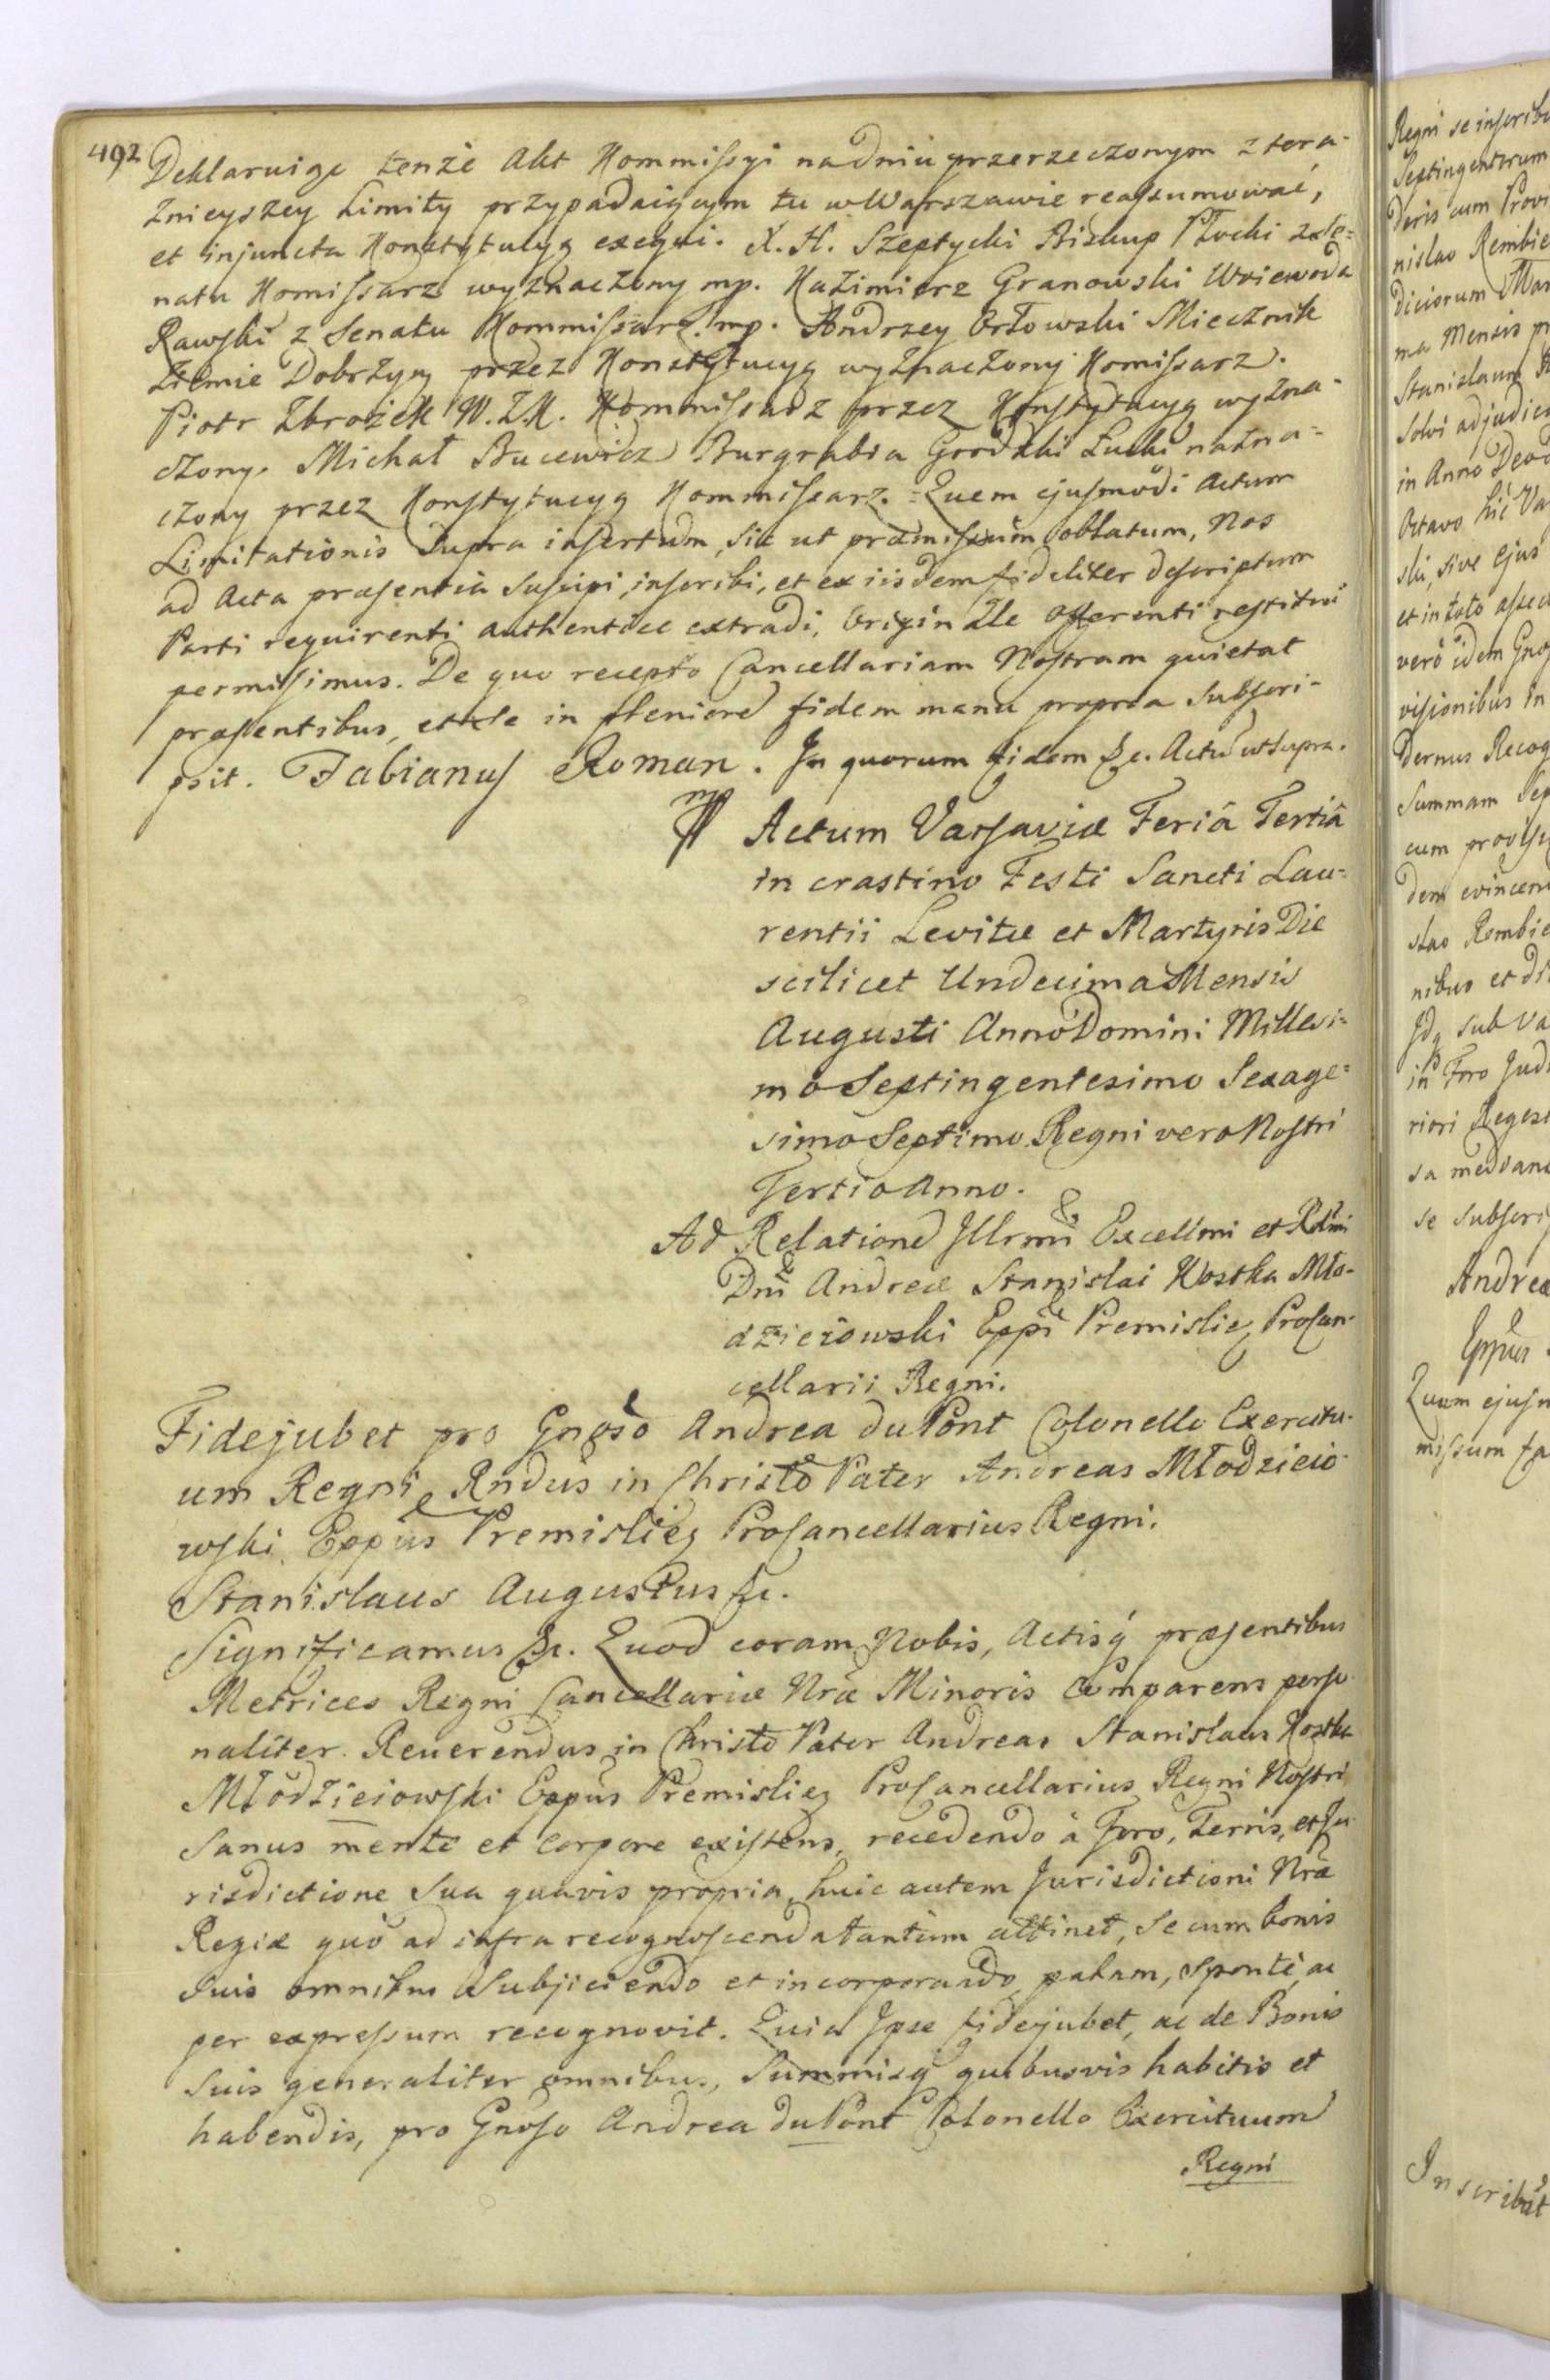 492
Deklaruiąc tenże Akt Kommissyi na dniu przerzeczonym z tera-
znieyszey Limity przypadaiącym tu w Warszawie reassumować,
et injuncta Konstytucyą exequi. X. H. Szeptycki Biskup Płocki z Se=
natu Komissarz wyznaczony mp. Kazimierz Granowski Woiewoda
Rawski z Senatu Kommissarz mp. Andrzey Orłowski Miecznik
Ziemie Dobrzyń przez Konstytucyą wyznaczony Komissarz.
Piotr Zbrożek W.Z.K. Kommissarz przez Konstytucyą wyzna-
czony. Michał Bucewicz Burgrabia Grodzki Łucki nazna=
czony przez Konstytucyą Kommissarz. = Quem ejusmodi Actum
Limitationis supra insertum, sic ut præmissum oblatum, Nos
ad Acta præsentia suscipi, inscribi, et ex iisdem fideliter descriptum
Parti requirenti authentice extradi, Originale Offerenti restitui
permisimus. De quo recepto Cancellariam Nostram quietat
præsentibus, et se in pleniore fidem manu propria subscri-
psit. Fabianus Roman. In quorum fidem &c. Actu ut supra.
mp
Actum Varsaviæ Feriâ Tertiâ
in crastino Festi Sancti Lau=
rentii Levitæ et Martyris Die
scilicet Undecima Mensis
Augusti Anno Domini Millesi=
mo Septingentesimo Sexage=
simo Septimo. Regni vero Nostri
Tertio Anno.
Ad Relatione Illrmi Excellmi et Rdmi
Dni Andreæ Stanislai Kostka Mło-
dzieiowski Eppi Premislien Procan-
cellarii Regni.
Fidejubet pro Gnoso Andrea du Pont Colonello Exercitu-
um Regni, Rndus in Christo Pater Andreas Młodzieio-
wski Eppus Premislien Procancellarius Regni.
Stanislaus Augustus &c.
Significamus &c. Quod coram Nobis, Actisq præsentibus
Metrices Regni Cancellariæ Nræ Minoris Comparens perso-
naliter. Reuerendus in Christo Pater Andreas Stanislaus Kostka
Młodzieiowski Eppus Premislien Procancellarius Regni Nostri
Sanus mente et corpore existens, recedendo à Foro, Terris, et Ju-
risdictione sua quavis propria, huic autem Jurisdictioni Nræ
Regiæ quò ad infra recognoscenda tantum attinet, se cum bonis
suis omnibus subjiciendo et incorporando, palam, sponte, ac
per expressum recognovit. Quia Ipse fidejubet, ac de Bonis
suis generaliter omnibus, summisq quibusvis habitis et
habendis, pro Gnoso Andrea du Pont Colonello Exercituum
Regni
Regni se inscrib
Septingentorum
deris cum Provi
nislao Rembie
diciorum Mar
ma Mensis pr
Stanislaum
solvi adjudic
in Anno
Octavo hic Va
ski, sive ejus
et in toto
verò idem Gnos
visionibus in
dernus Recog
Summam Sep
cum provis
dem evincen
slao Rembie
nibus et
Idq sub va
in Foro Judi
riori Regest
sa mediant
se subscri
Andrea
Eppus
Quem ejusm
missum
Inscribit